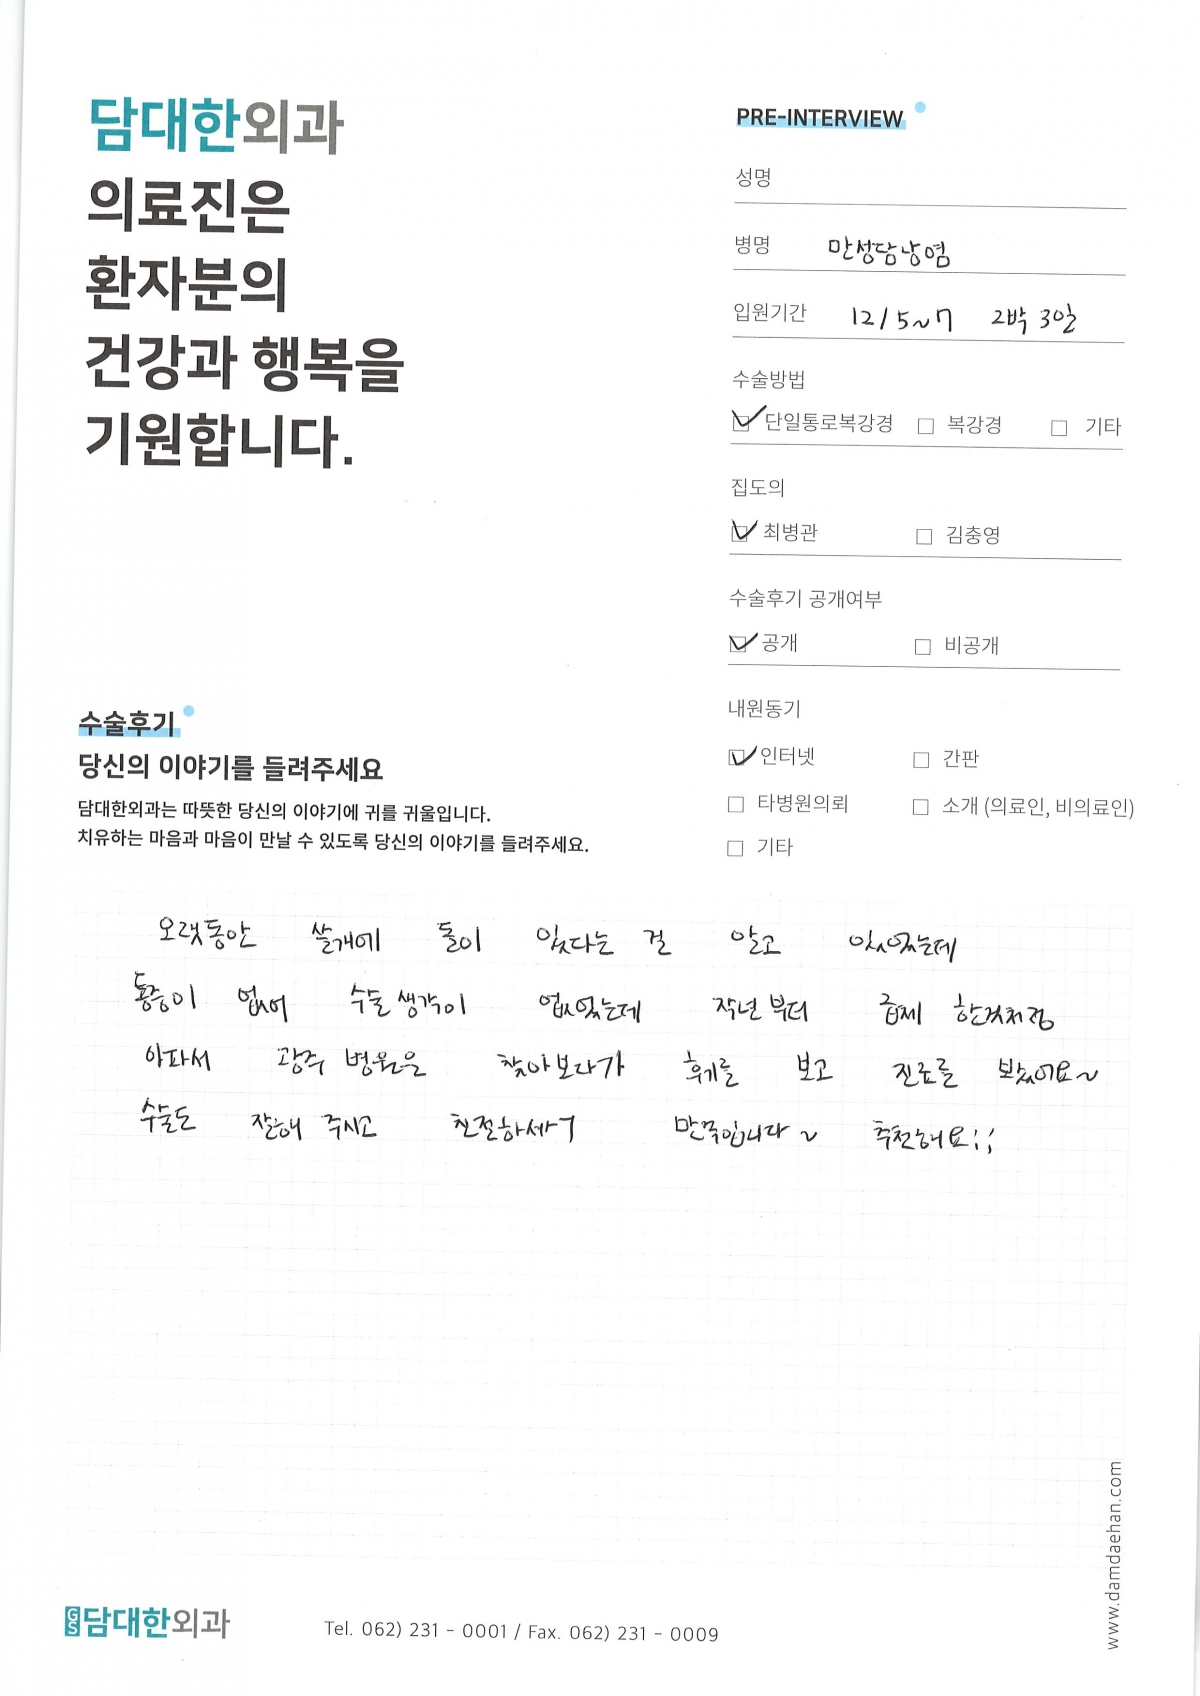 담대한외과
의료진은
환자분의
건강과 행복을
기원합니다.
PRE-INTERVIEW
성명
병명 만성담낭염
입원기간 12/5~7 2박 3일
수술방법
단일통로복강경 복강경 기타
집도의
최병관 김충영
수술후기 공개여부
공개 비공개
내원동기
인터넷 간판
타병원의뢰 소개 (의료인, 비의료인)
기타
수술후기
당신의 이야기를 들려주세요
담대한외과는 따뜻한 당신의 이야기에 귀를 귀울입니다.
치유하는 마음과 마음이 만날 수 있도록 당신의 이야기를 들려주세요.
오랫동안 쓸개에 돌이 있다는 걸 알고 있었는데
통증이 없어 수술 생각이 없었는데 작년 부터 급체 한것처럼
아파서 광주 병원을 찾아보다가 후기를 보고 진료를 보았어요~
수술도 잘해 주시고 친절하세ㅏㄱ 만족입니다~ 추천해요;;
GS담대한외과
Tel. 062) 231 - 0001 / Fax. 062) 231 - 0009
www.damdaehan.com